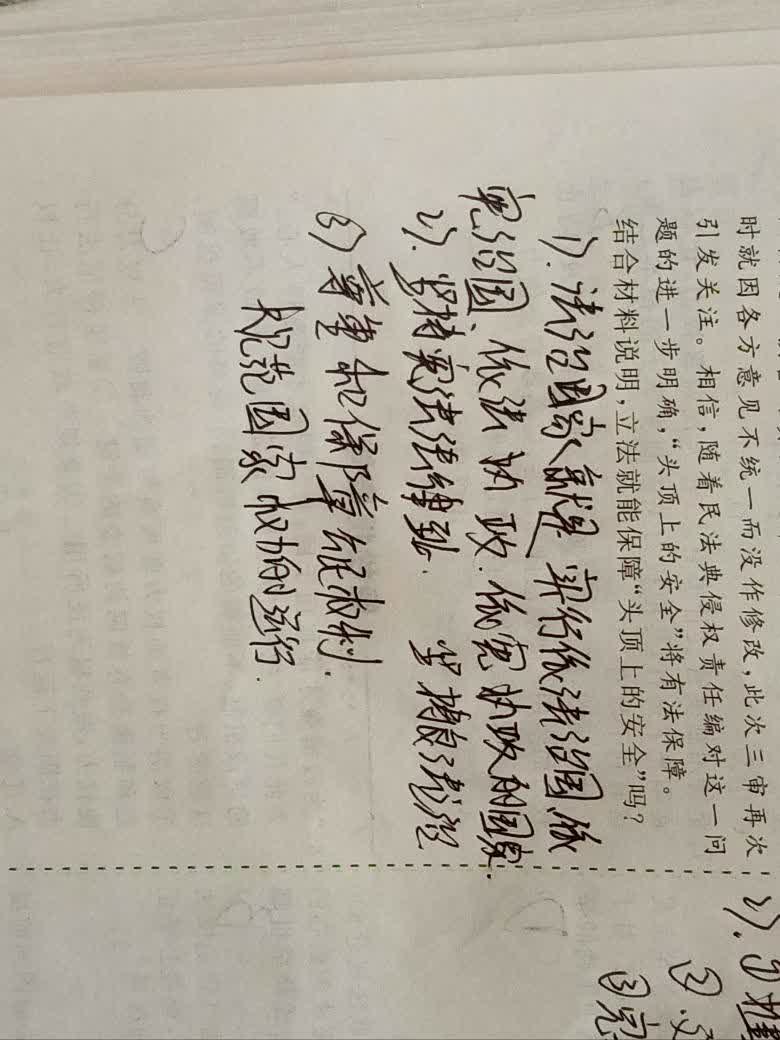 时就因各方意见不统一而没作修改,此次三审再次
引发关注。相信,随着民法典侵权责任编对这一问
题的进一步明确,“头顶上的安全”将有法保障。
结合材料说明,立法就能保障“头顶上的安全”吗?
1). 法治国家就是实行依法治国、依
宪治国、依法执政.依宪执政的国家.
2). 坚持宪法法律至上. 坚持良法之治
3) 尊重和保障公民权利.
规范国家权力的运行.
2). ①
②
③完